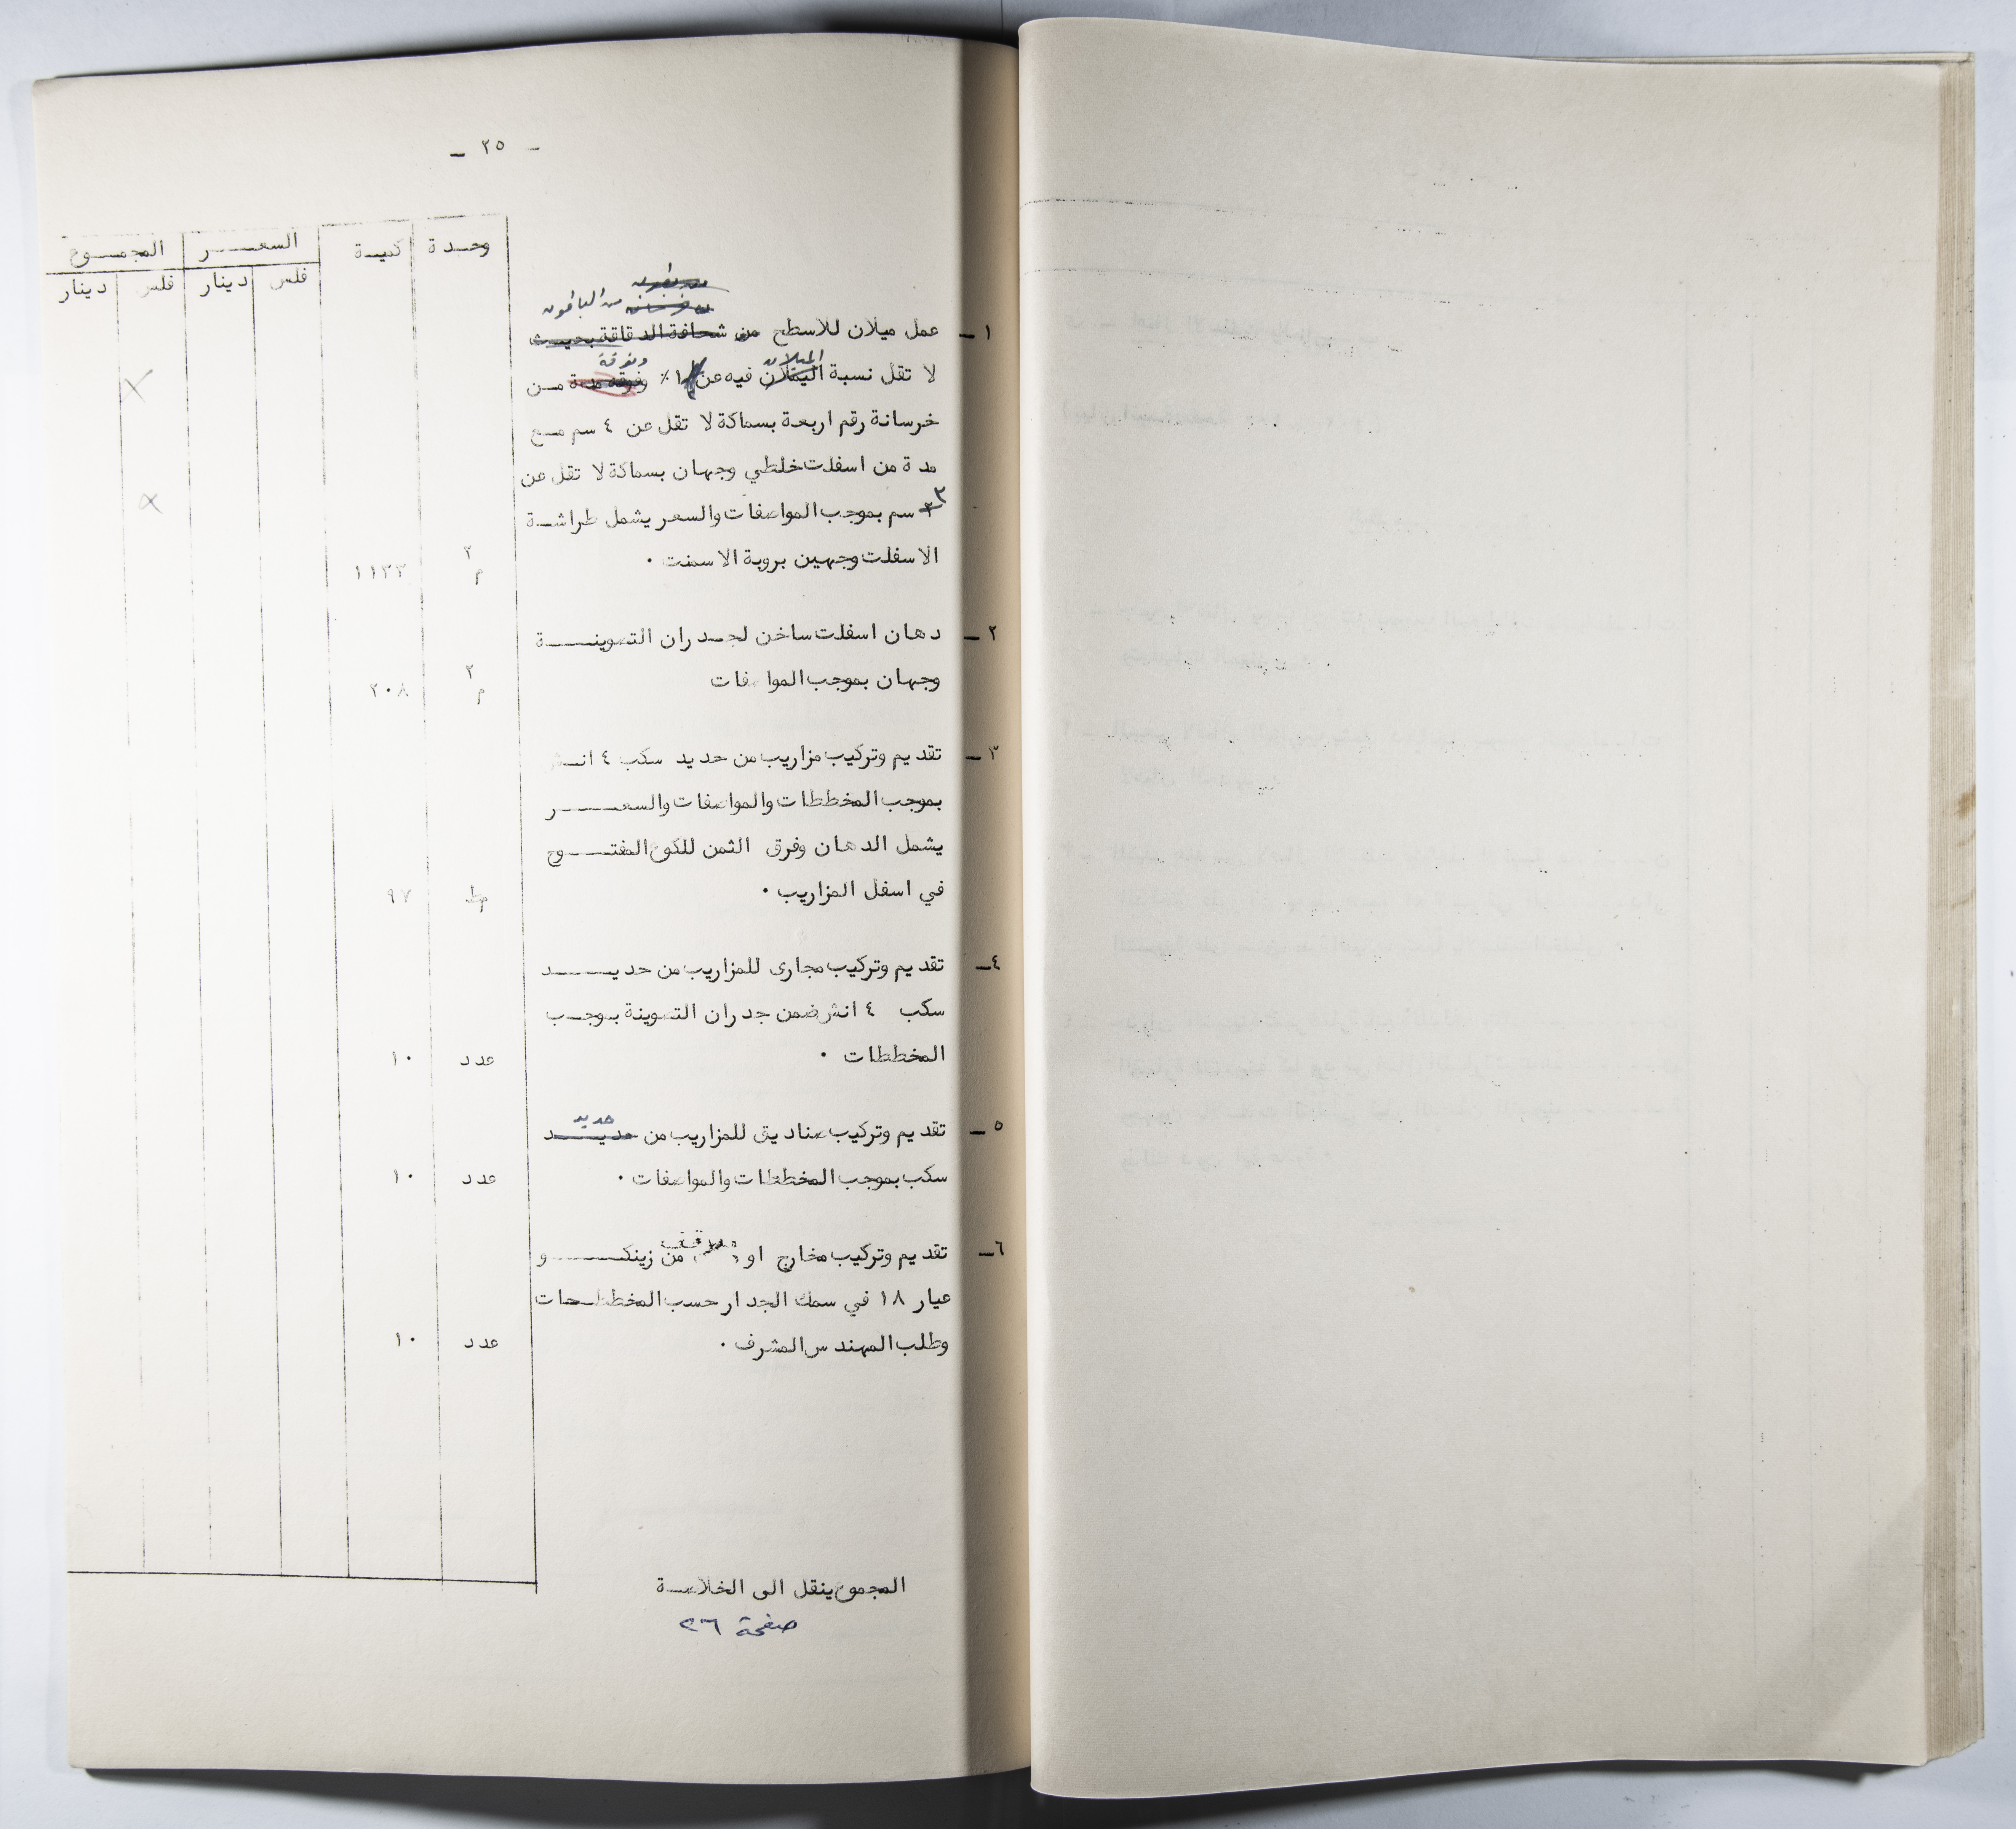 - ٢٥ -
وحدة كمية السعر المجموع
فلس دينار فلس دينار
من الباطون
١- عمل ميلان للاسطح من شحافة الدقاقة بحيث
الميلان وفوقة
لا تقل نسبة الميلان فيه عن ١٪ وفوقه مدة من
خرسانة رقم اربعة بسماكة لا تقل عن ٤ سم مع
مدة من اسفلت خلطي وجهان بسماكة لا تقل عن
٣
سم بموجب المواصفات والسعر يشمل طراشة
الاسفلت وجهين بروبة الاسمنت . م٢ ١١٣٣
٢- دهان اسفلت ساخن لجدران التصوينة
وجهان بموجب المواصفات م٢ ٢٠٨
٣- تقديم وتركيب مزاريب من حديد سكب ٤ انش
بموجب المخططات والمواصفات والسعر
يشمل الدهان وفرق الثمن للكوع المفتوح
في اسفل المزاريب . مط ٩٧
٤- تقديم وتركيب مجارى للمزاريب من حديد
سكب ٤ انش ضمن جدران التصوينة بوجب
المخططات . عدد ١٠
حديد
٥- تقديم وتركيب صناديق للمزاريب من حديد
سكب بموجب المخططات والمواصفات . عدد ١٠
٦- تقديم وتركيب مخارج او من زينكو
عيار ١٨ في سمك الجدار حسب المخططات
وطلب المهندس المشرف . عدد ١٠
المجموع ينقل الى الخلاصة
صفحة ٢٦